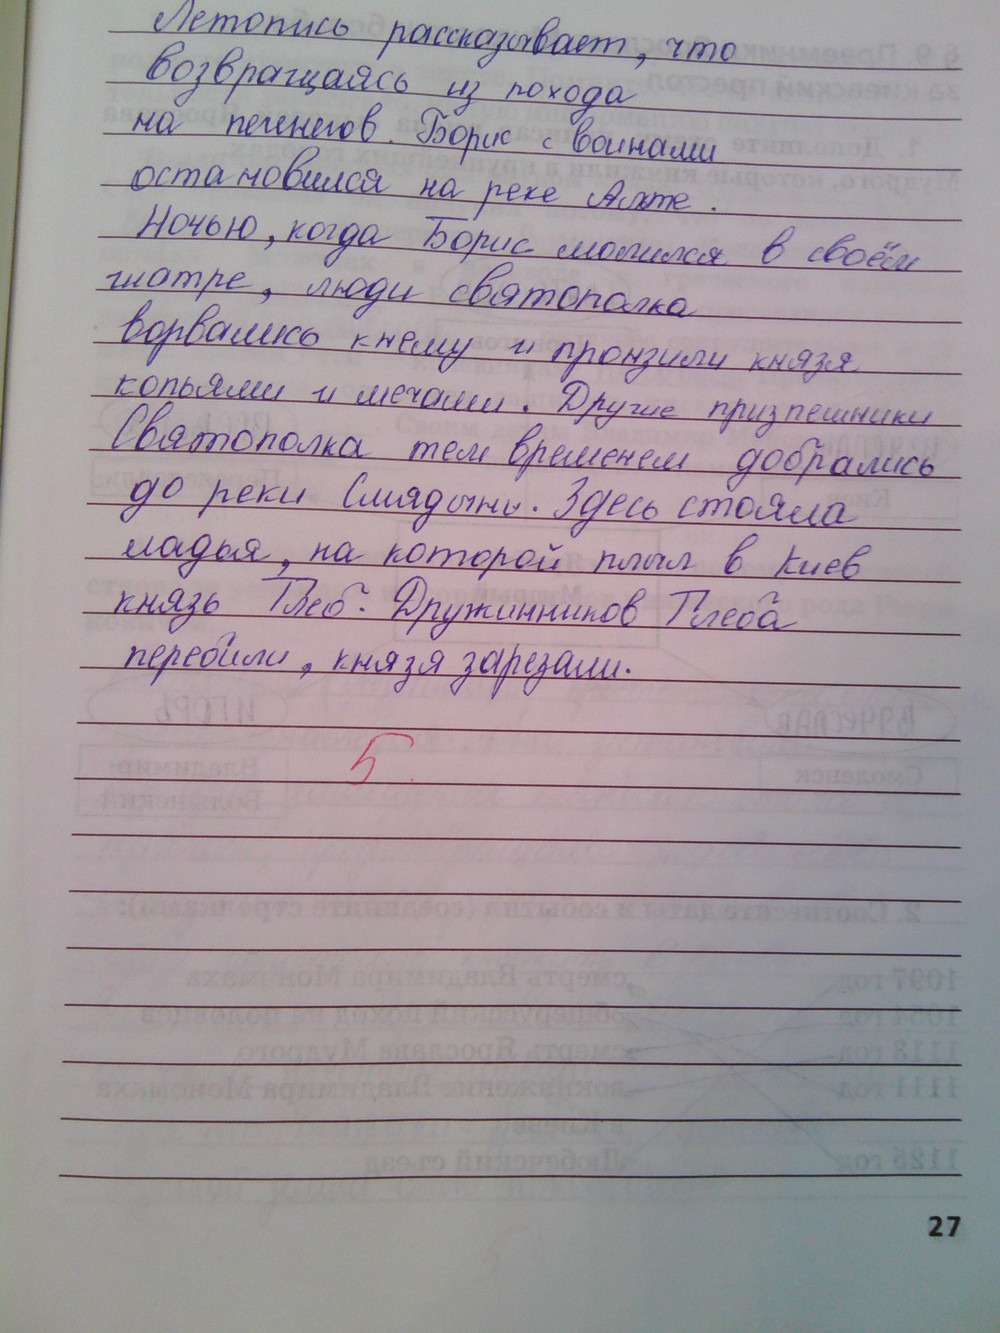 Летопись рассказывает, что
возвращаясь из похода
на печенегов. Борис с воинами
остановился на реке Алте.
Ночью, когда Борис молился в своём
шатре, люди святополка
ворвались кнему и пронзили князя
копьями и мечами. Другие призпешники
Святополка тем временем добрались
до реки Смядынь. Здесь стояла
ладья, на которой плыл в Киев
князь Глеб. Дружинников Глеба
перебили, князя зарезали.
5.
27